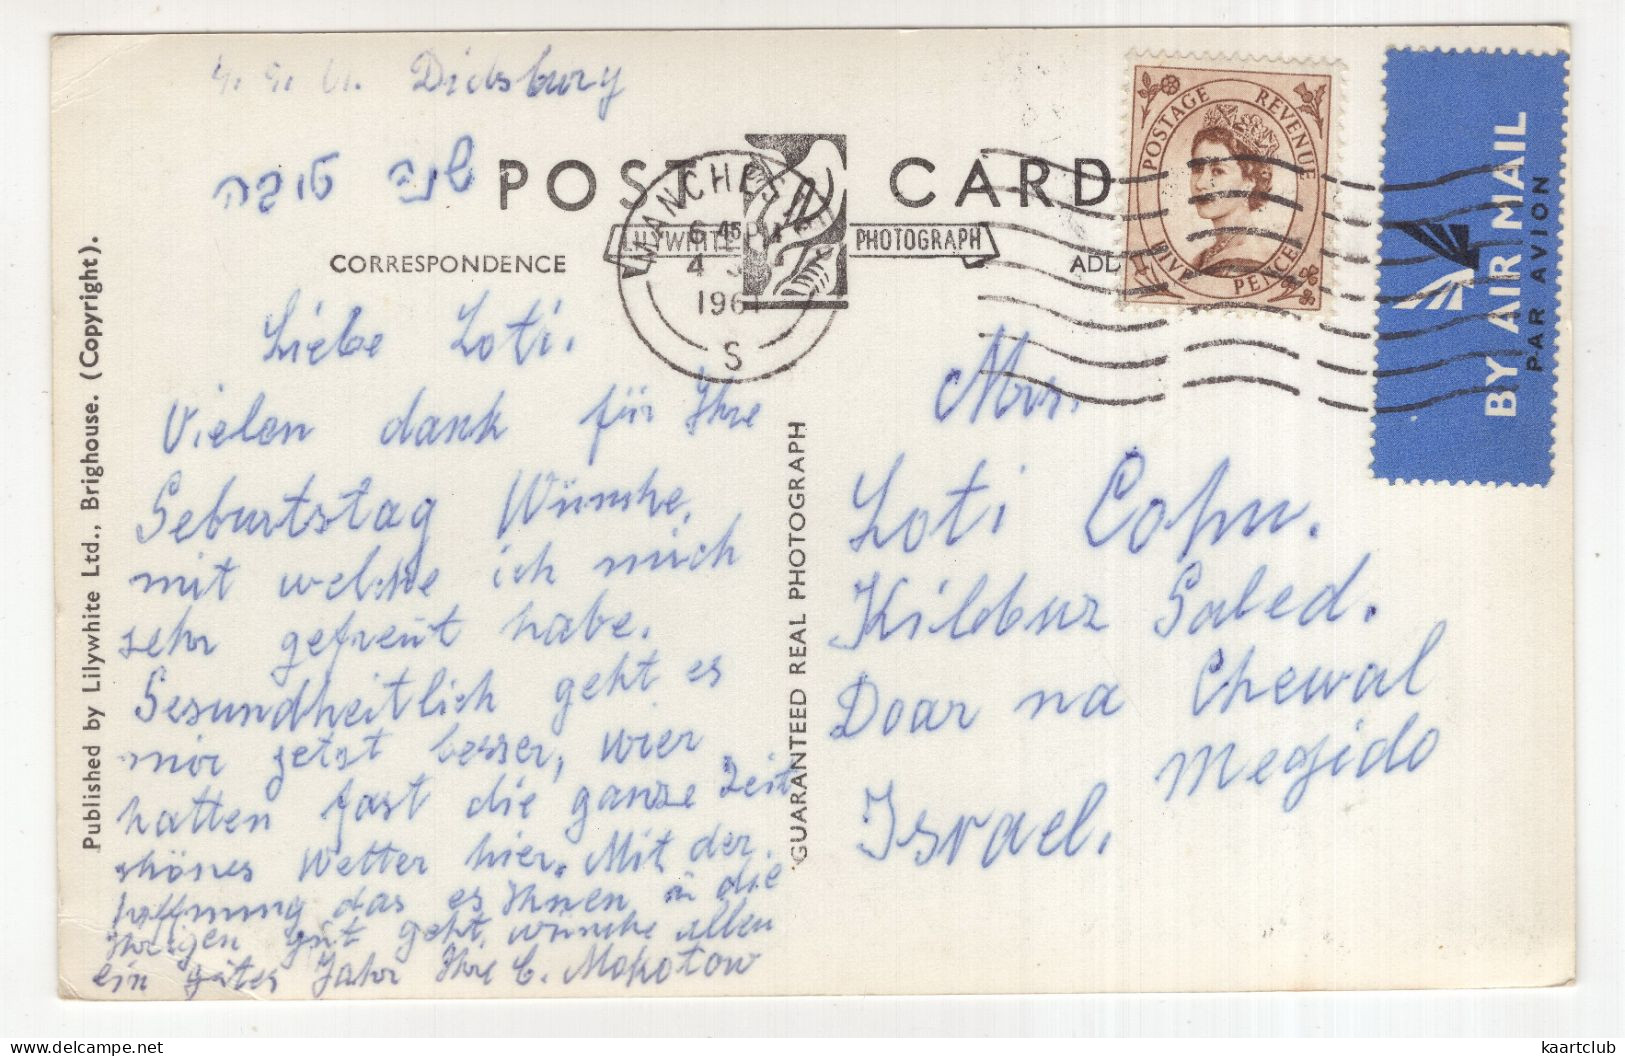 4. 9. 61. Didsbury
שנה טובה
POST CARD
LILYWHITE PHOTOGRAPH
CORRESPONDENCE
ADD
MANCHESTER
6 45 PM
4 S
1961
S
POSTAGE REVENUE
FIVE PENCE
BY AIR MAIL
PAR AVION
Published by Lilywhite Ltd., Brighouse. (Copyright).
GUARANTEED REAL PHOTOGRAPH
Liebe Loti.
Vielen dank für Ihre
Geburtstag Wünshe,
mit welche ich mich
sehr gefreut habe.
Gesundheitlich geht es
mir jetst besser, wier
hatten fast die ganze Zeit
shönes Wetter hier. Mit der
hoffnung das es Ihnen u die
Ihrigen gut geht, wünshe allen
ein gutes Jahr Ihre C. Mokotow
Mrs.
Loti Cohn.
Kibbuz Galed.
Doar na Chewal
Megido
Israel.
kaartclub